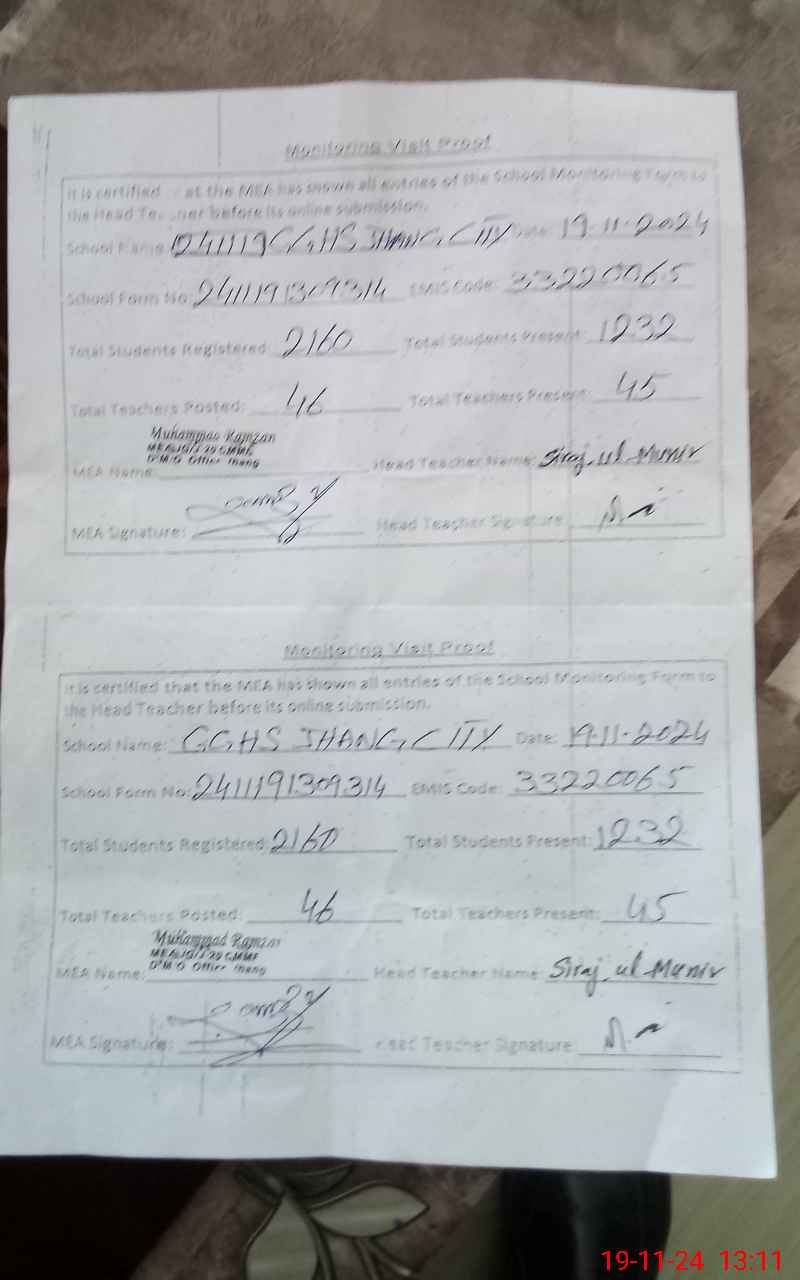 Monitoring Visit Proof
It is certified at the MEA has shown all entries of the School Monitoring Form to
the Head Teacher before its online submission.
School Name: GGHS JHANG CITY Date: 19-11-2024
School Form No: 2411191309314 EMIS Code: 33220065
Total Students Registered: 2160 Total Students Present: 1232
Total Teachers Posted: 46 Total Teachers Present: 45
Muhammad Ramzan
D.M.O Office Jhang
MEA Name: Head Teacher Name: Siraj ul Munir
MEA Signature: Head Teacher Signature:
Monitoring Visit Proof
It is certified that the MEA has shown all entries of the School Monitoring Form to
the Head Teacher before its online submission.
School Name: GGHS JHANG CITY Date: 19-11-2024
School Form No: 2411191309314 EMIS Code: 33220065
Total Students Registered: 2160 Total Students Present: 1232
Total Teachers Posted: 46 Total Teachers Present: 45
Muhammad Ramzan
D.M.O Office Jhang
MEA Name: Head Teacher Name: Siraj ul Munir
MEA Signature: Head Teacher Signature:
19-11-24 13:11